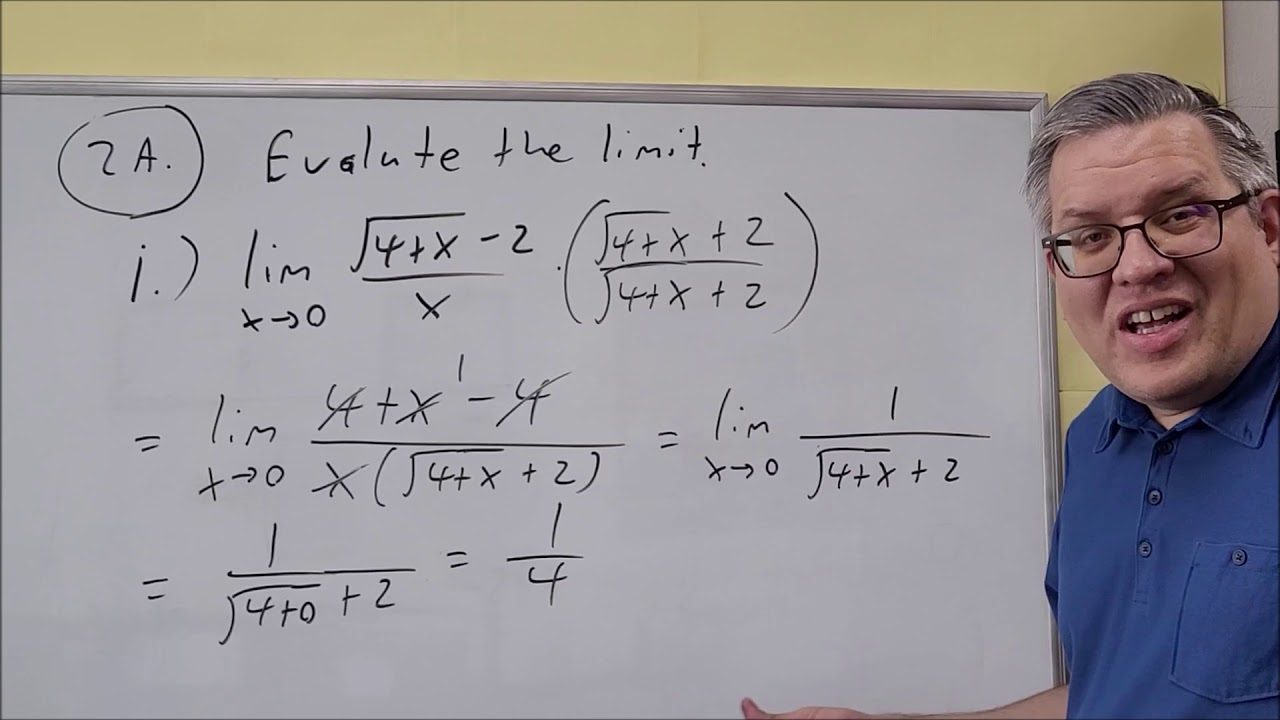 2A. Evalute the limit.
i.) lim x→0 (√(4+x) - 2)/x · ((√(4+x) + 2)/(√(4+x) + 2))
= lim x→0 (4+x - 4)/(x(√(4+x) + 2)) 1 = lim x→0 1/(√(4+x) + 2)
= 1/(√(4+0) + 2) = 1/4